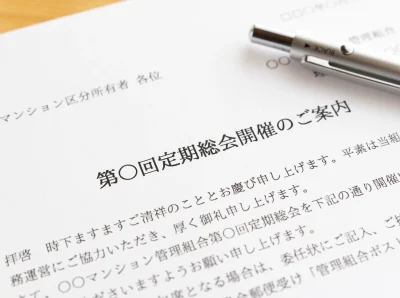 □□□年○
管理組合
マンション区分所有者 各位
第〇回定期総会開催のご案内
拝啓 時下ますますご清祥のこととお慶び申し上げます。平素は当組
務運営にご協力いただき、厚く御礼申し上げます。
、〇〇マンション管理組合第〇回定期総会を下記の通り開催
くださいますようお願い申し上げます。
席となる場合は、委任状にご記入、ご
会郵便受け「管理組合ポスト